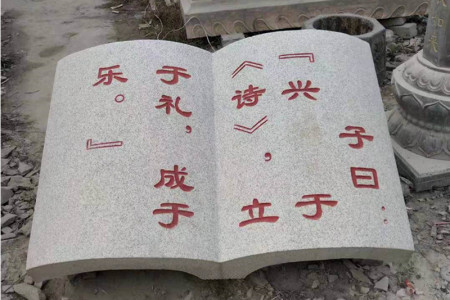 子曰:
『兴于
《诗》,立
于礼,成于
乐。』